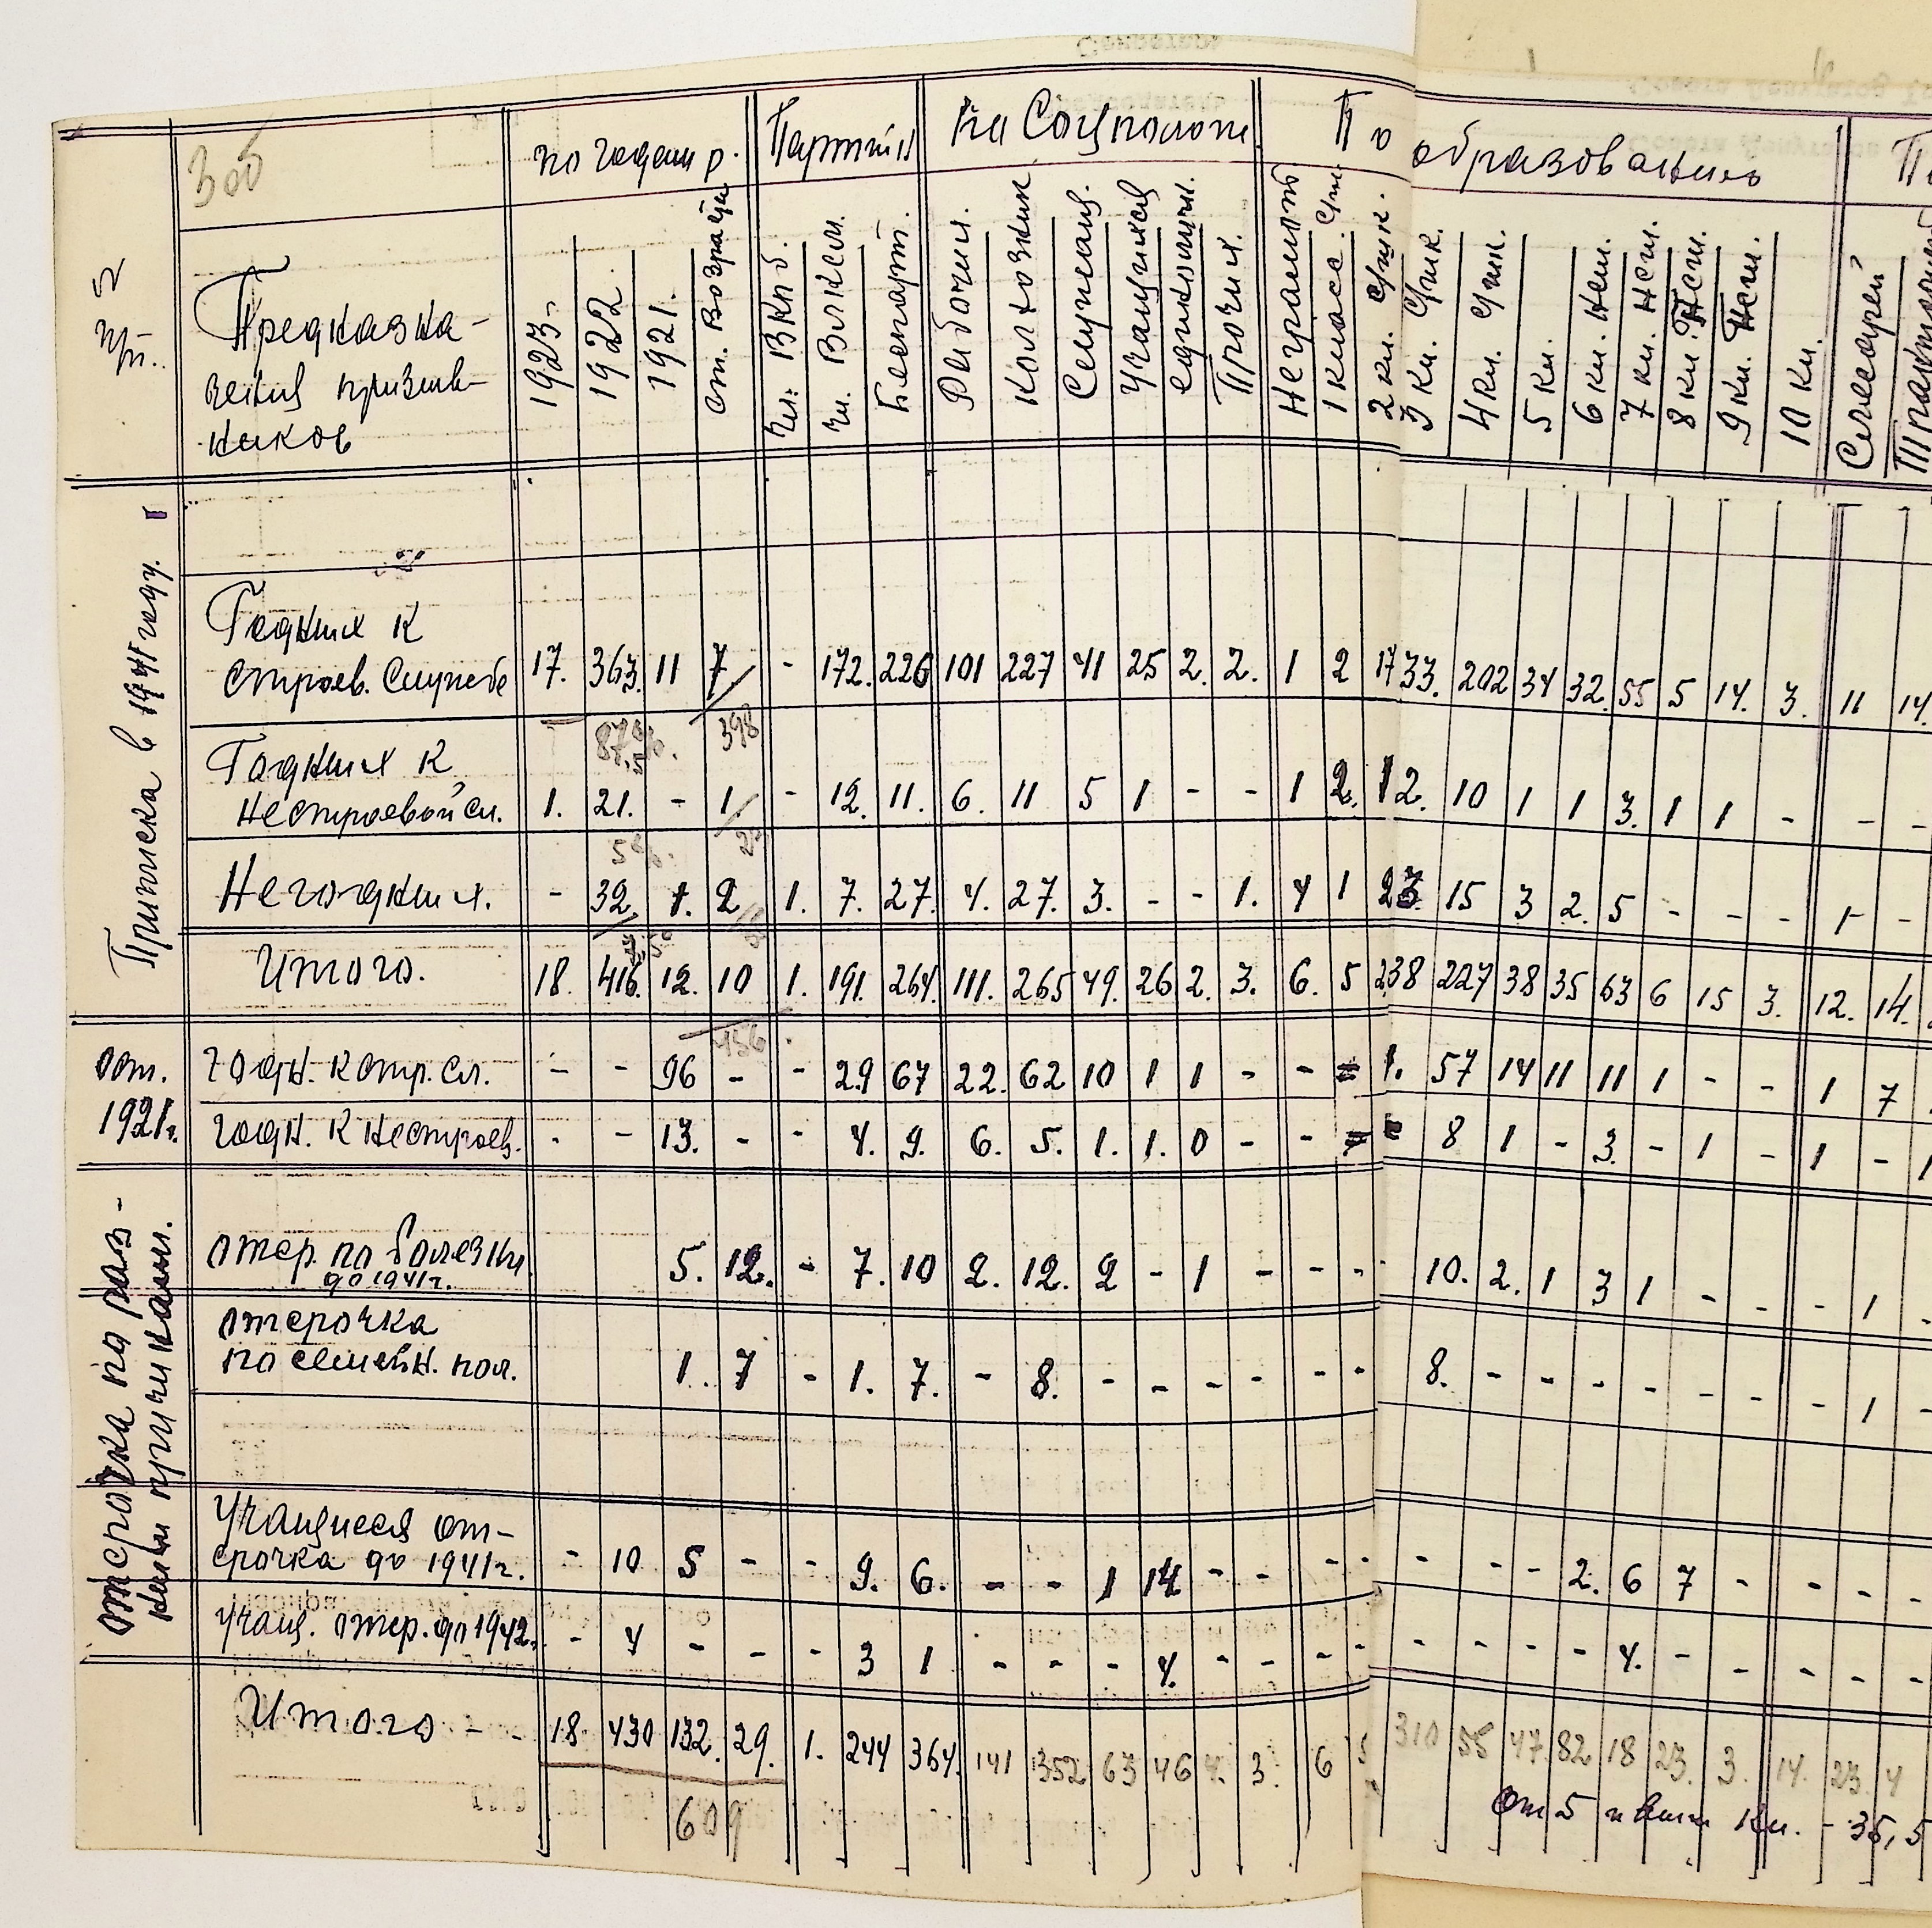 306
по годам р. Партийн На Соцположен По образованию
№ пр.
Предназначения призывников
1923 1922 1921 ст. Возраста
чл. ВКПб. чл. ВЛКСМ. Беспарт.
Рабочих. Колхозник Служащ. Учащихся единолич. Прочих.
Неграмотн 1 класс. 2 кл. 3 кл. 4 кл. 5 кл. 6 кл. 7 кл. 8 кл. 9 кл. 10 кл.
Слесарей
Приписка в 1941 году.
Годных к
строев. Службе 17. 363. 11 7 - 172. 226 101 227 41 25 2. 2. 1 2 17 33. 202 34 32. 55 5 14. 3. 11 14.
87,5%. 398
Годных к
нестроевой сл. 1. 21. - 1 - 12. 11. 6. 11 5 1 - - 1 2. 1 2. 10 1 1 3. 1 1 - - -
5%.
Негодных. - 32 1. 2 1. 7. 27. 4. 27. 3. - - 1. 4 1 2 3. 15 3 2. 5 - - - 1 -
Итого. 18. 416. 12. 10 1. 191. 264. 111. 265 49. 26 2. 3. 6. 5 2 38 227 38 35 63 6 15 3. 12. 14.
456
1921г.
годн. к стр. сл. - - 96 - - 29 67 22. 62 10 1 1 - - 1. 57 14 11 11 1 - - 1 7
годн. к нестроев. - - 13. - - 4. 9. 6. 5. 1. 1. 0 - - 8 1 - 3. - 1 - 1 -
отсрочка по разным причинам.
отср. по болезни 5. 12. - 7. 10 2. 12. 2 - 1 - - - 10. 2. 1 3 1 - - - 1
до 1941г.
отсрочка
по семейн. пол. 1. 7 - 1. 7. - 8. - - - - - - 8. - - - - - - - 1
Учащиеся от-
срочка до 1941г. - 10 5 - - 9. 6. - - 1 14 - - - - - - - 2. 6 7 - - - -
учащ. отср. до 1942. - 4 - - - 3 1 - - - 4. - - - - - - - - 4. - - - - -
Итого - 18 430 132. 29. 1. 244 364. 141 352 63 46 4. 3. 6 5 310 55 47 82 18 23. 3. 14. 23. 4
609
От 5 и выше кл. - 35,5